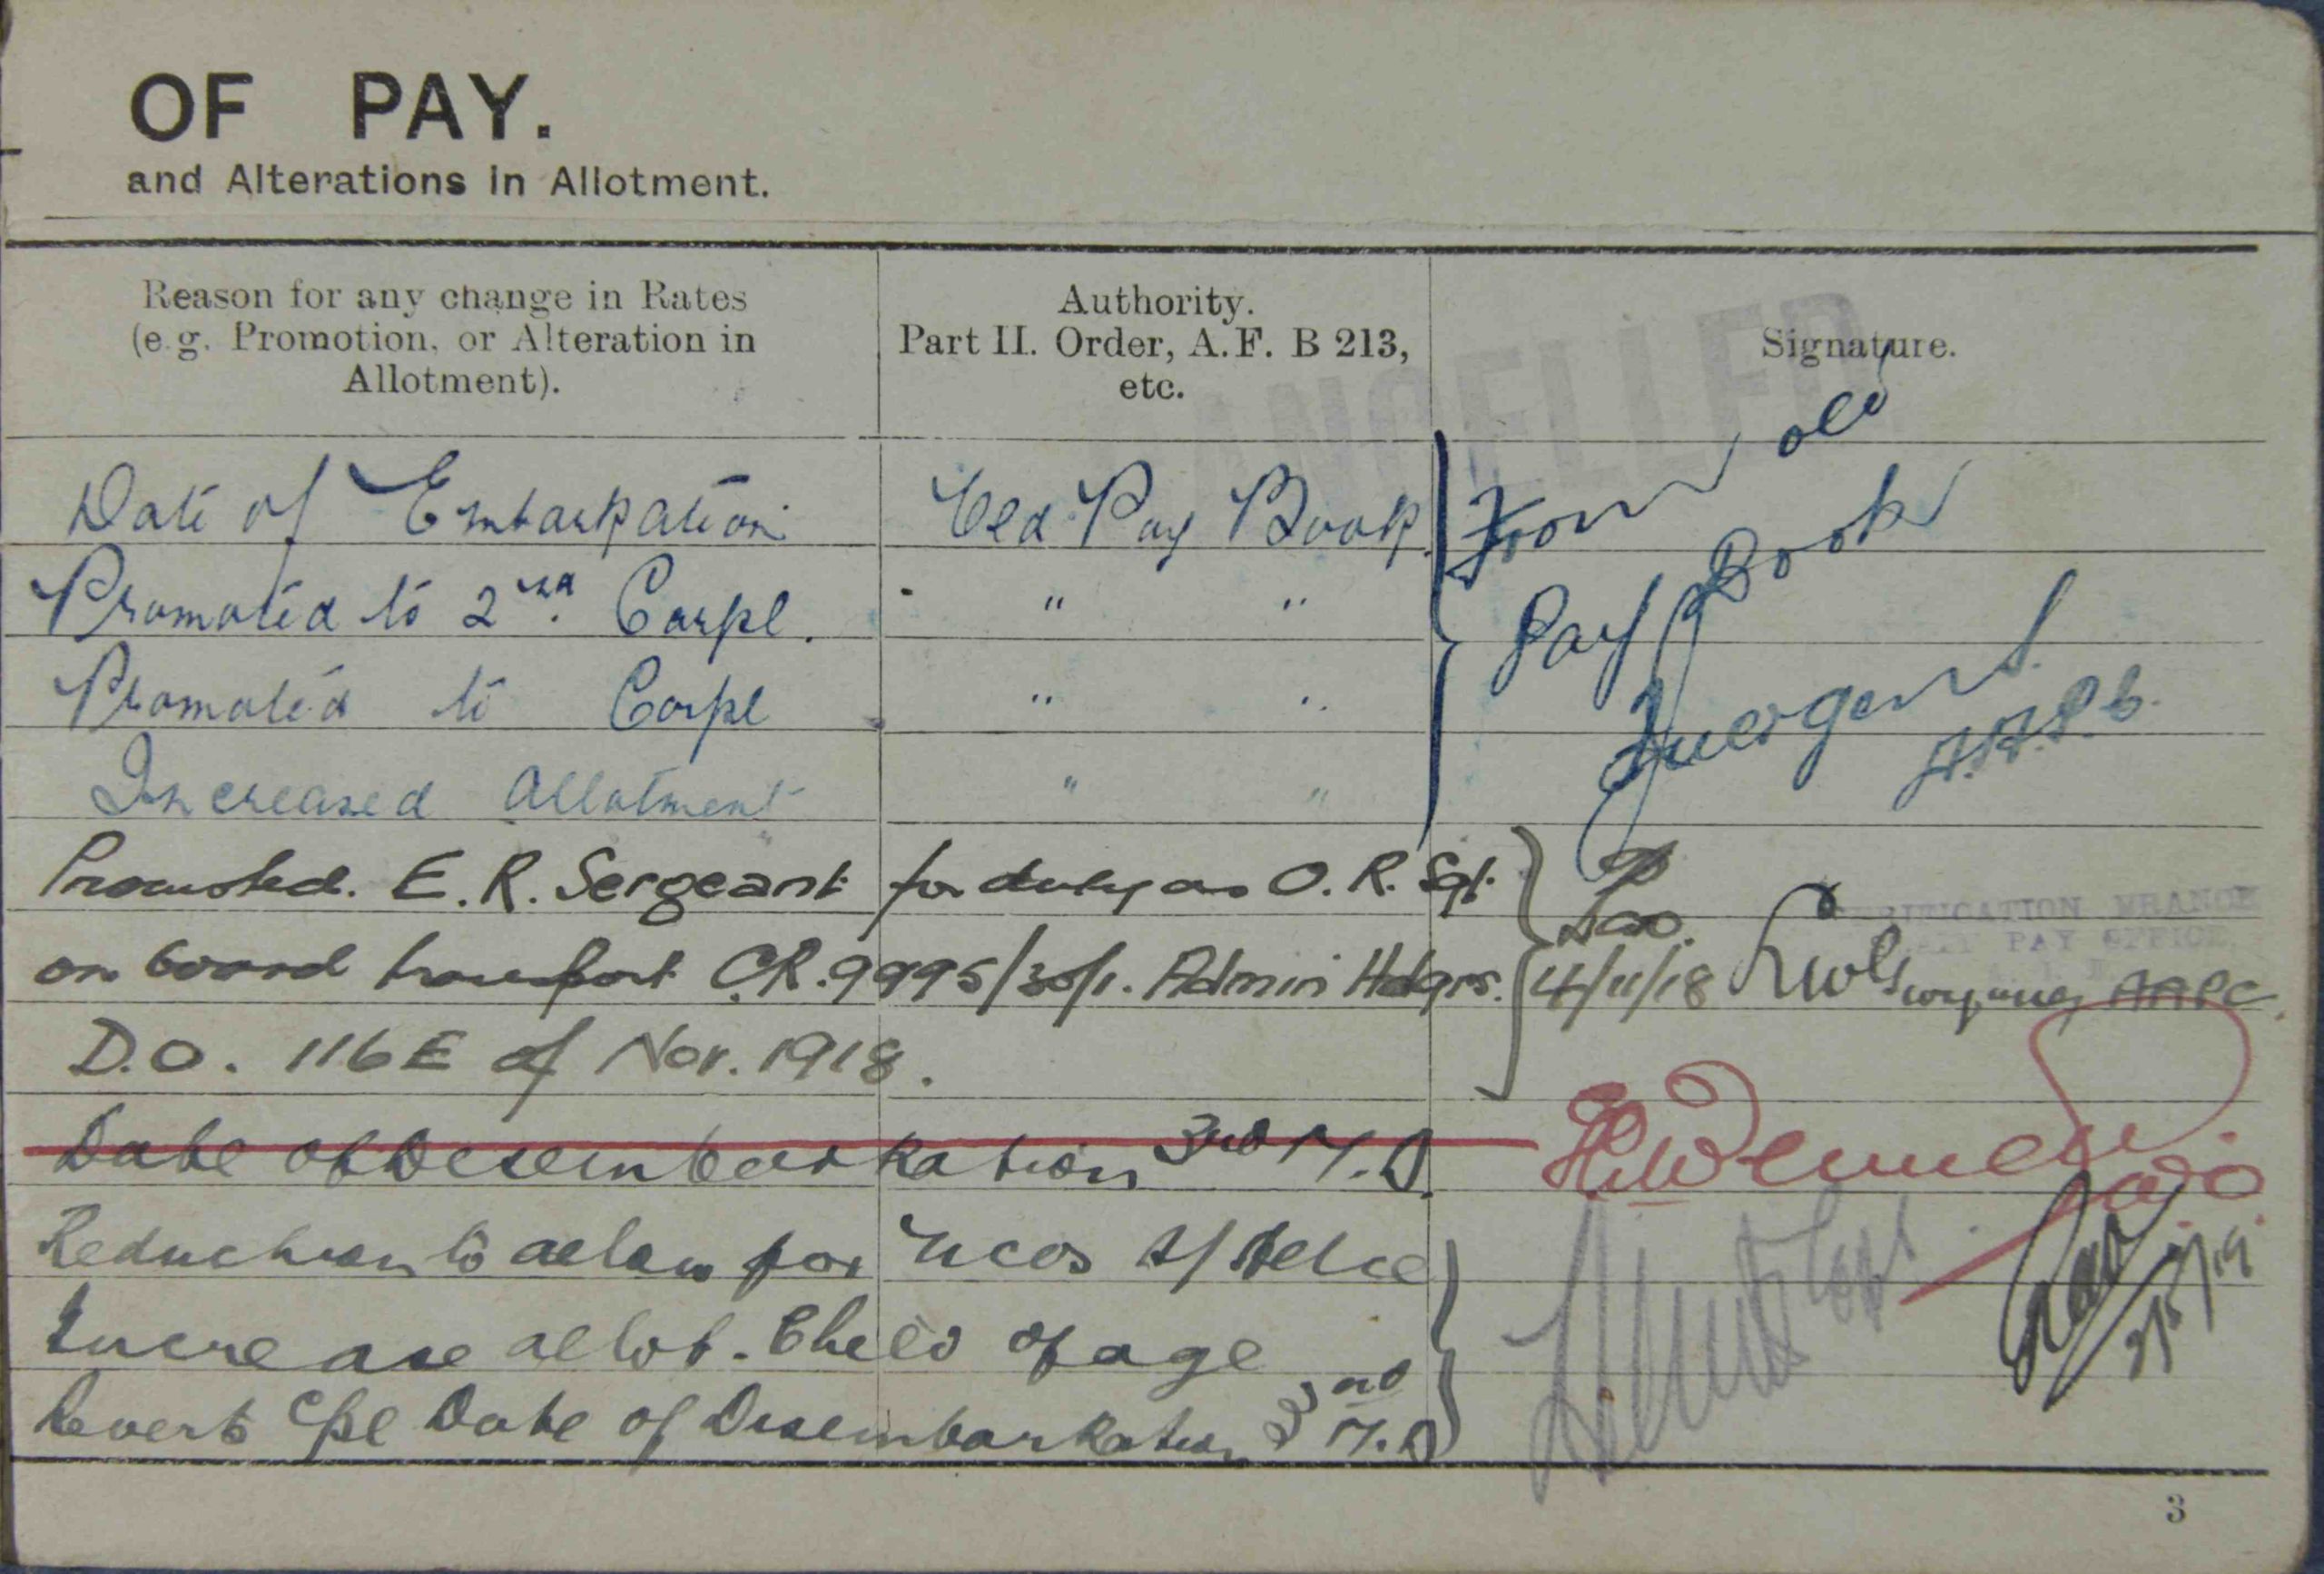 OF PAY.
and Alterations in Allotment.
Reason for any change in Rates
(e.g. Promotion, or Alteration in
Allotment).
Authority.
Part II. Order, A.F. B 213,
etc.
Signature.
CANCELLED
Date of Embarkation Old Pay Book From old
Promoted to 2nd. Corpl. " " Pay Book
Promoted to Corpl " "
Increased Allotment " "
Promoted. E.R. Sergeant for duty as O.R. Sgt.
on board transport C.R. 9995/30/1. Admin Hdqrs. 4/11/18 AAPC
VERIFICATION BRANCH
PAY OFFICE,
D.O. 116E of Nov. 1918.
Date of Desembarkation 3rd M.D.
Reduction to allow for
Increase allot. Child of age
Reverts Cpl Date of Disembarkation 3rd M.D
3